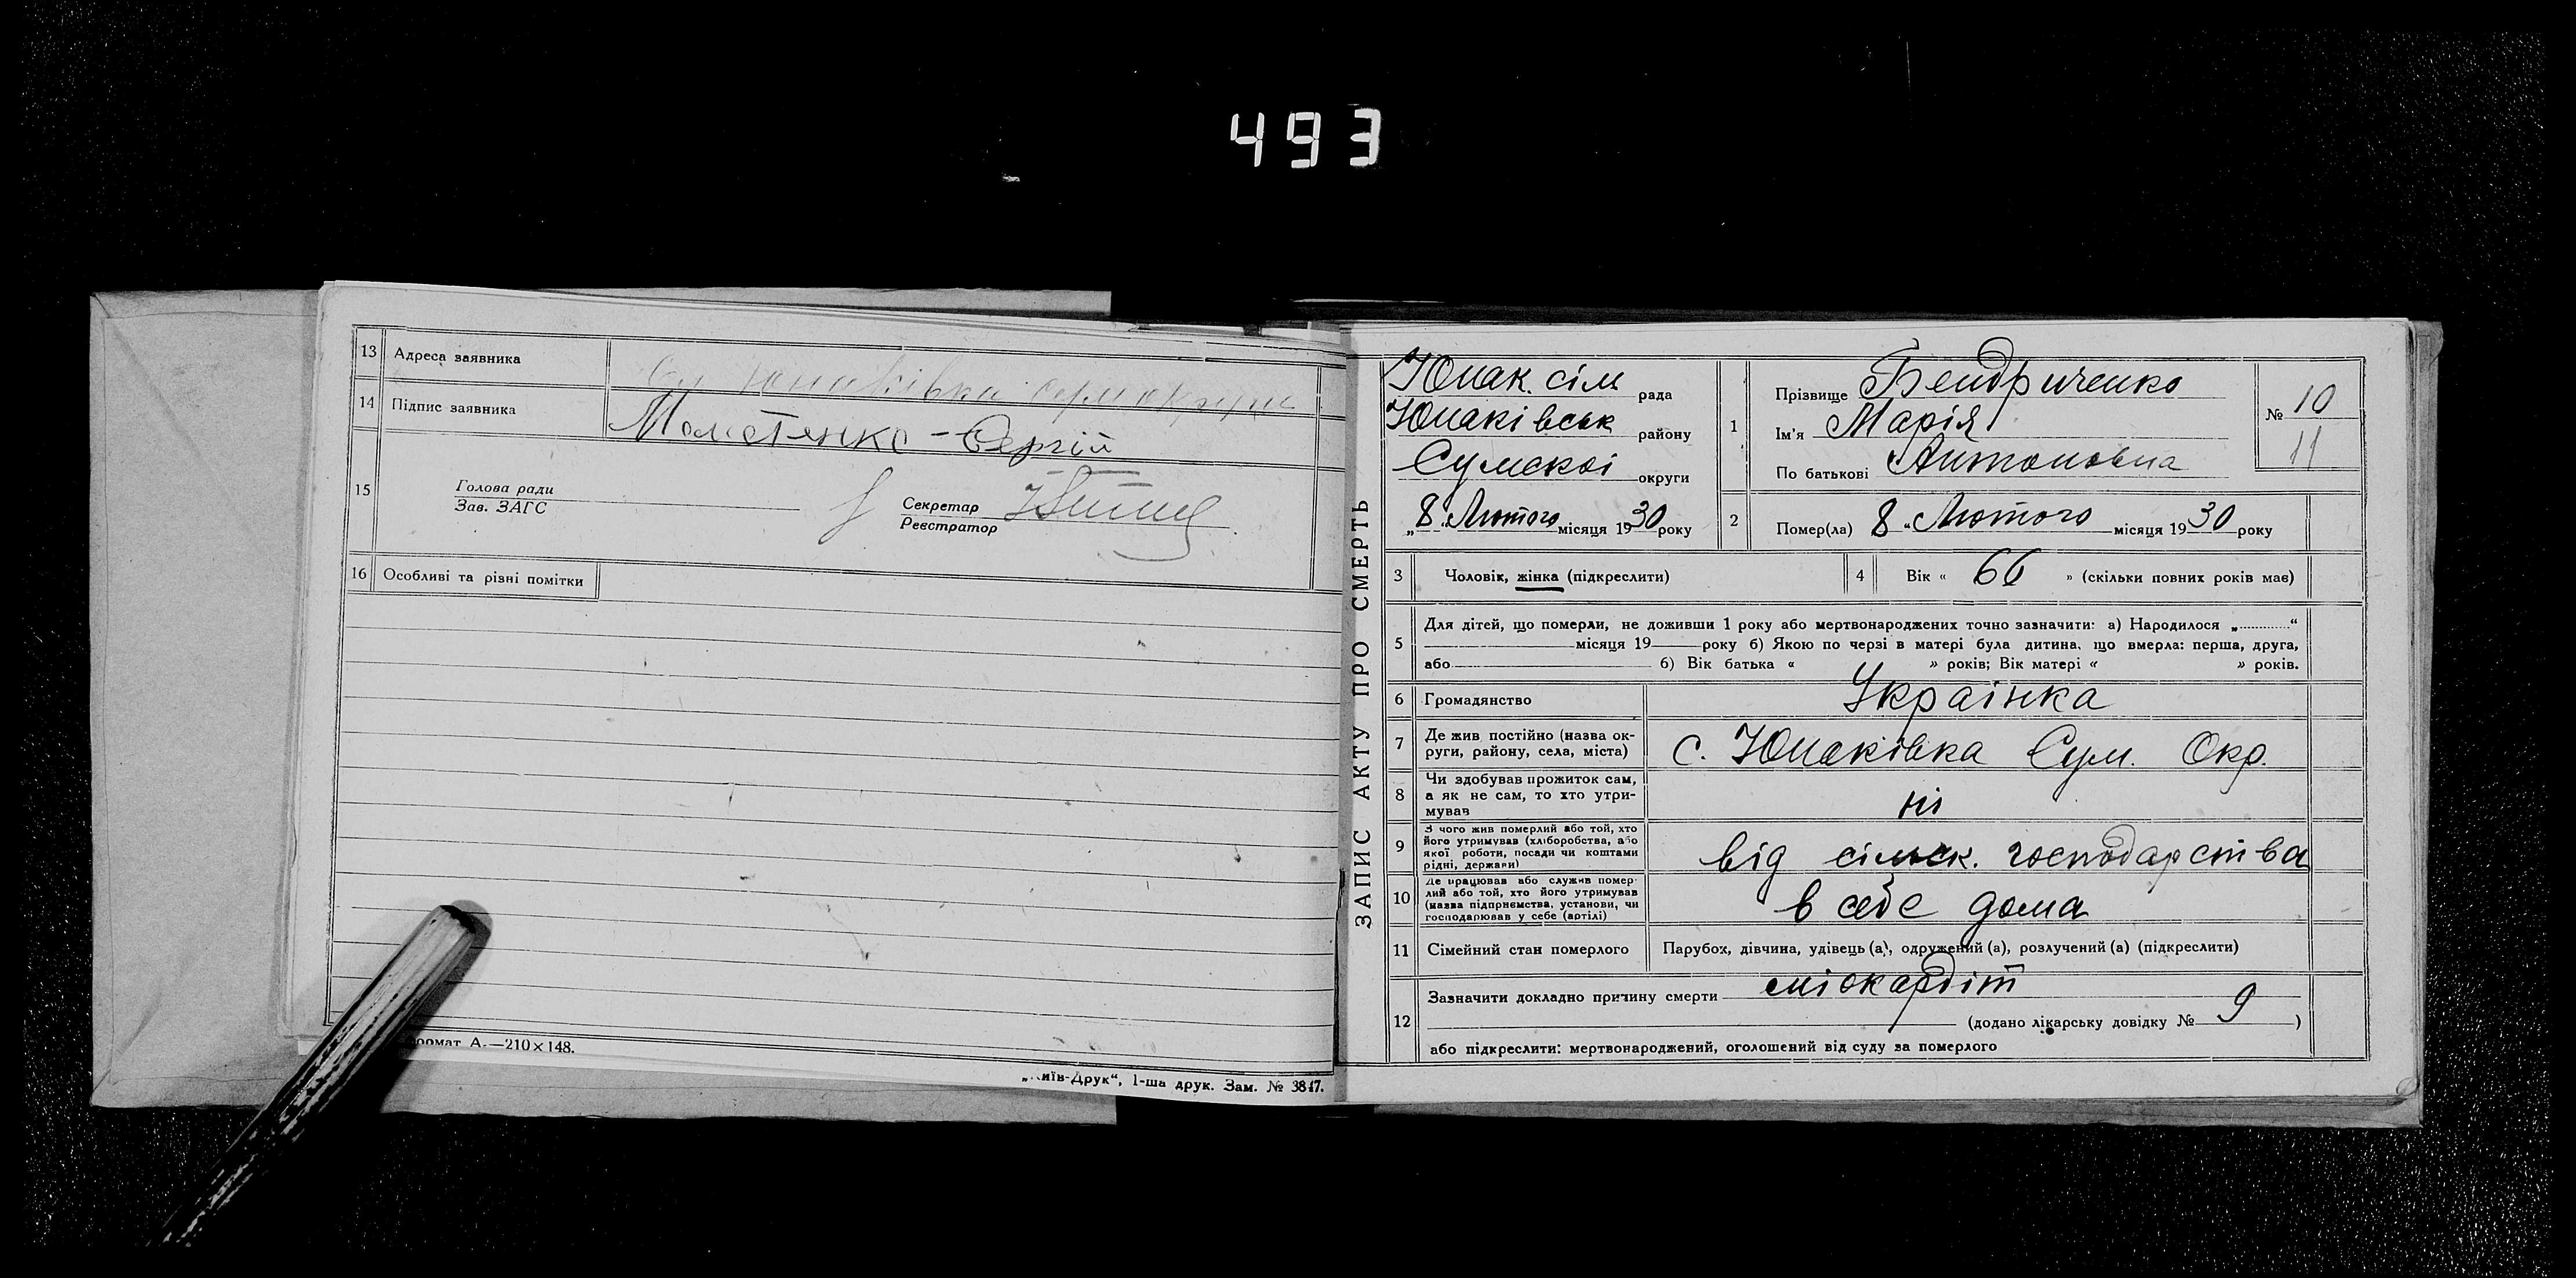 493
13 Адреса заявника Юнаківка
14 Підпис заявника Сергій
15 Голова ради
Зав. ЗАГС
Секретар
Реєстратор
16 Особливі та різні помітки
Формат А. —210×148.
„Київ-Друк“, 1-ша друк. Зам. № 3847.
ЗАПИС АКТУ ПРО СМЕРТЬ
Юнак. сіль рада
Юнаківськ району
Сумскоі округи
„ 8 „ Лютого місяця 1930 року
1 Прізвище Бендриченко
Ім'я Марія
По батькові Антоновна
№ 10
11
2 Помер(ла) 8 “ Лютого місяця 1930 року
3 Чоловік, жінка (підкреслити)
4 Вік « 66 » (скільки повних років має)
5 Для дітей, що померли, не доживши 1 року або мертвонароджених точно зазначити: а) Народилося „ “
місяця 19 року б) Якою по черзі в матері була дитина, що вмерла: перша, друга,
або б) Вік батька « » років; Вік матері « » років.
6 Громадянство Украінка
7 Де жив постійно (назва ок-
руги, району, села, міста) с. Юнаківка Сум. Окр.
8 Чи здобував прожиток сам,
а як не сам, то хто утри-
мував ні
9 З чого жив померлий або той, хто
його утримував (хліборобства, або
якої роботи, посади чи коштами
рідні, держави) від сільск. господарства
10 Де працював або служив помер-
лий або той, хто його утримував
(назва підприємства, установи, чи
господарював у себе (артілі) в себе дома
11 Сімейний стан померлого Парубок, дівчина, удівець (а), одружений (а), розлучений (а) (підкреслити)
12 Зазначити докладно причину смерти міокардіт
(додано лікарську довідку № 9 )
або підкреслити: мертвонароджений, оголошений від суду за померлого